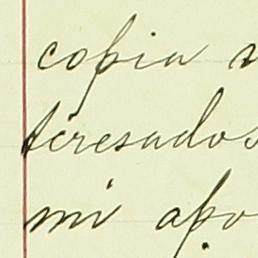 copia
teresados
mi apo